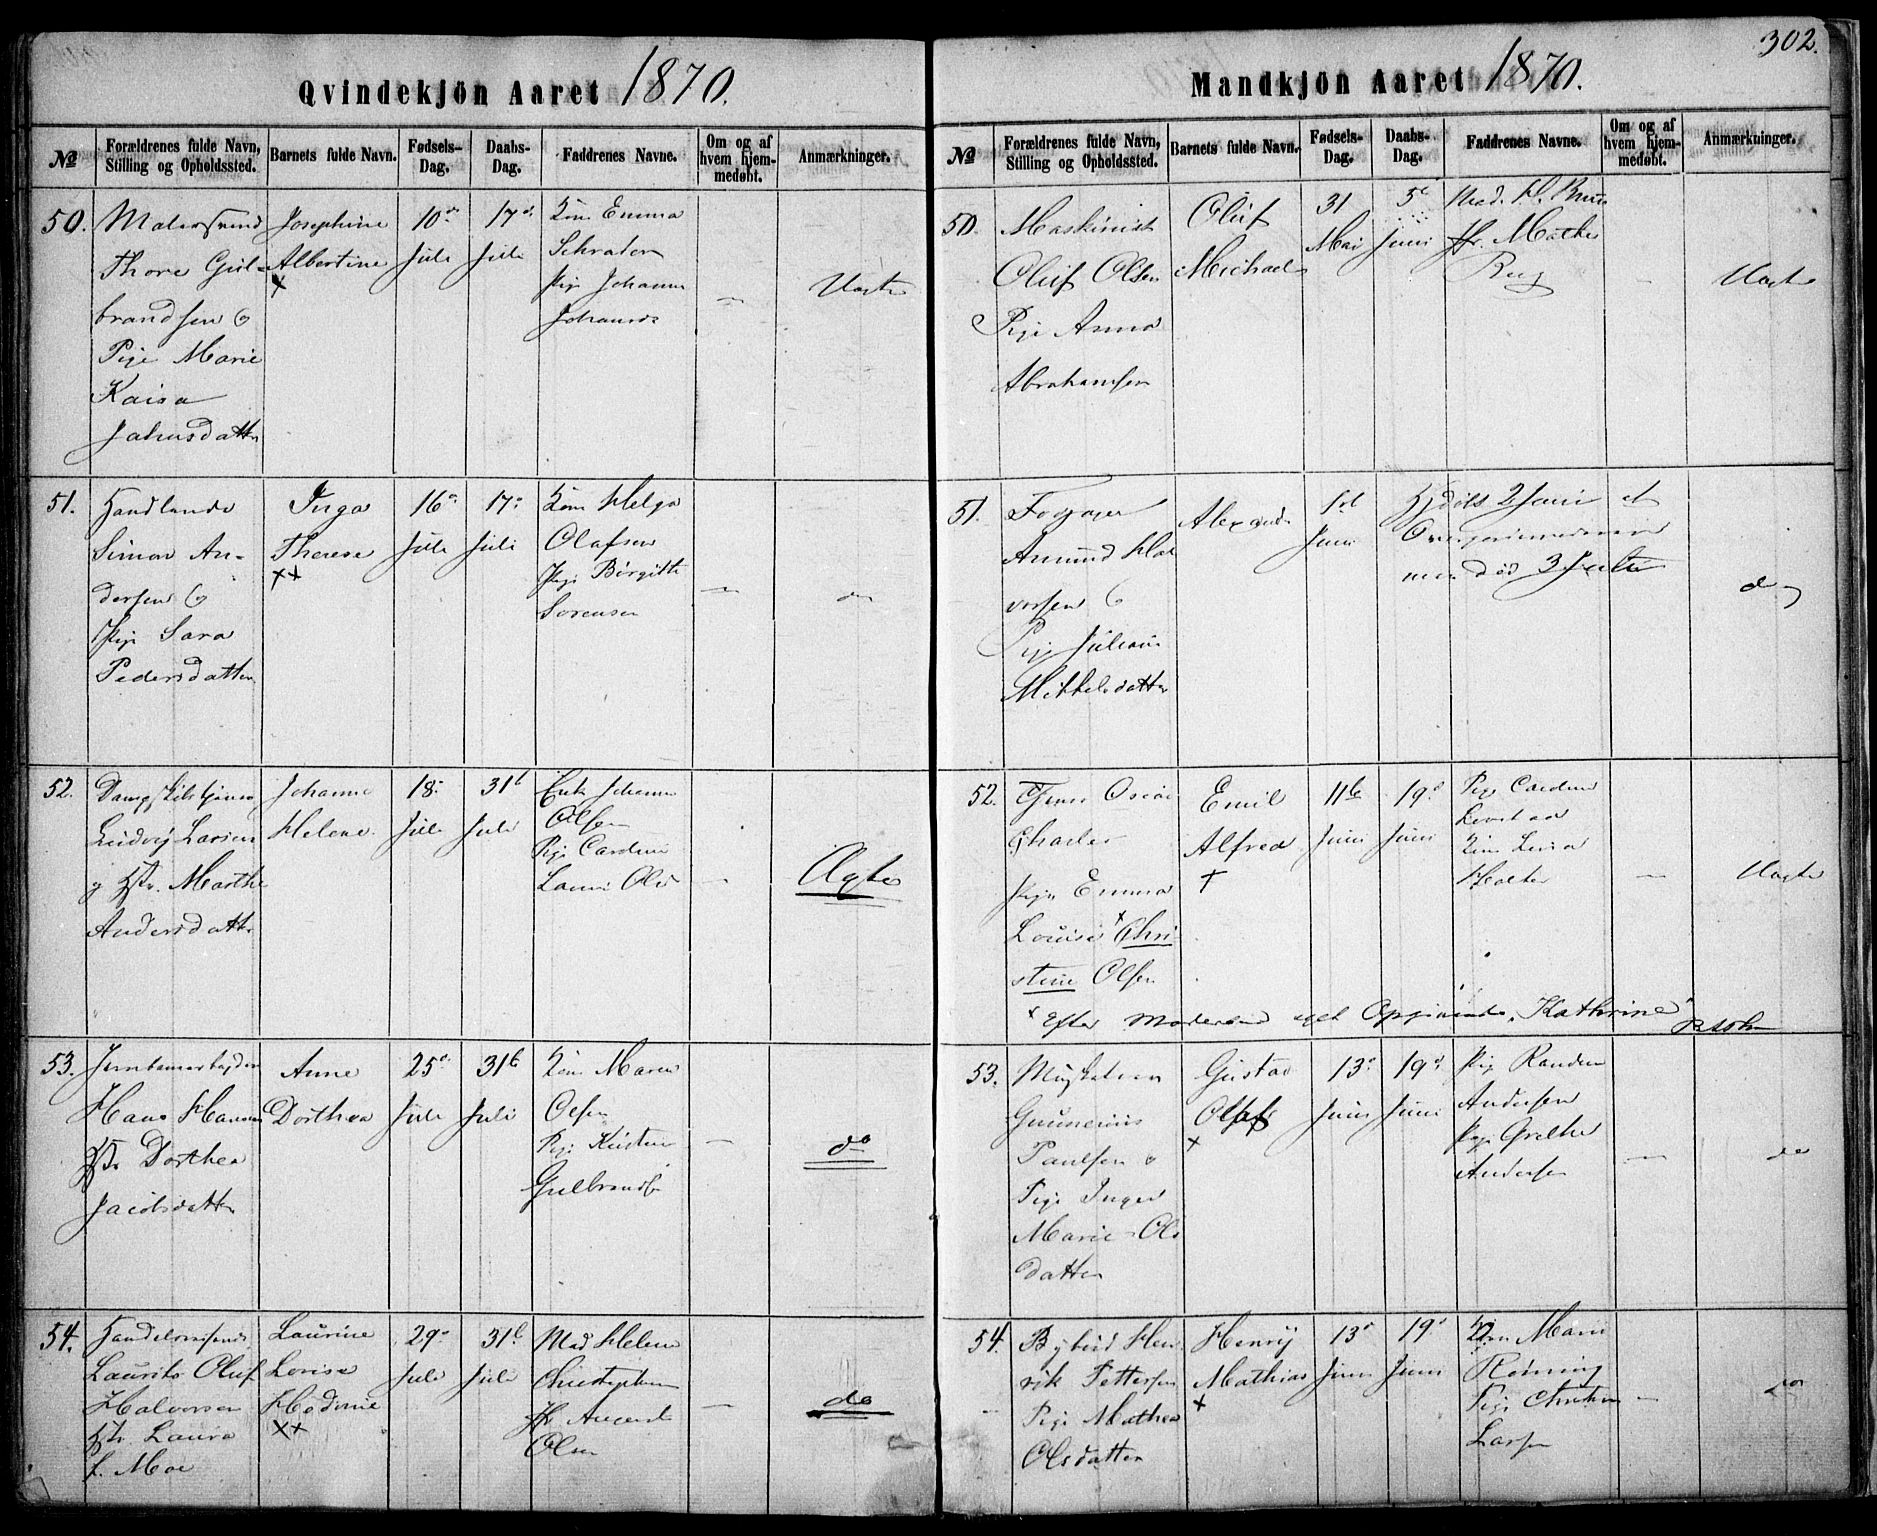 302.
Qvindekjön Aaret 1870.
№
Forældrenes fulde Navn, Stilling og Opholdssted.
Barnets fulde Navn.
Fødsels-Dag.
Daabs-Dag.
Faddrenes Navne.
Om og af hvem hjem-medøbt.
Anmærkninger.
50.
Malersvend
Thore Gul-
brandsen &
Pige Marie
Kaisa
Johnsdatter
Josephine
Albertine
×
10de
Juli
17de
Juli
Kone Emma
Pige Johanne
—
Uægte
51.
Handlende
Simon An-
dersen &
Pige Sara
Pedersdatter
Inga
Therese
××
16de
Juli
17de
Juli
Kone Helga
Olafsen
Pige Birgitte
Sorensen
—
do
52.
Ludvig Larsen
og Hstr. Marthe
Andersdatter
Johanne
Helene
18de
Juli
31te
Juli
Enke Johanne
Olsen
Pige Caroline
—
Ægte
53.
Hans Hansen
Hstr Dorthea
Jacobsdatter
Anne
Dorthea
25de
Juli
31te
Juli
Kone Maren
Olsen
Pige Kirstine
Gulbrands
—
do
54.
Laurits Oluf
Halvorsen
Hstr. Laura
f. Moe
Laurine
Lovise
Hedvine
××
29de
Juli
31te
Juli
Mad Helene
Christophersen
Hr August
Olsen
—
do
Mandkjön Aaret 1870.
№
Forældrenes fulde Navn, Stilling og Opholdssted.
Barnets fulde Navn.
Fødsels-Dag.
Daabs-Dag.
Faddrenes Navne.
Om og af hvem hjem-medøbt.
Anmærkninger.
50.
Maskinist
Oluf Olsen
Pige Anna
Abrahamsen
Oluf
Michael
31
Mai
5te
Juni
Hr. Mathes
—
Uægte
51.
Amund Hal
vorsen &
Pige Juliane
Mikkelsdatter
Alexander
1ste
Juni
Hjdøbt 2 Juni af
død 3 Juli
do
52.
Oscar
Charles
Pige Emma
Louise × Chri-
stine Olsen
Emil
Alfred
+
11te
Juni
19de
Juni
Pige Caroline
Holter
—
Uægte
× Efter Moderens eget Opgivende "Kathrine"
53.
Gunnerius
Paulsen &
Pige Inger
Marie Ols
datter
Gustav
Oluf
×
13de
Juni
19de
Juni
Pige Randine
Andersen
Pige Grethe
Andersen
—
do
54.
Bybud Hen
rik Pettersen
Pige Mathea
Olsdatter
Henry
Mathias
×
13de
Juni
19de
Juni
Kone Marie
Røning
Pige
Larsen
—
do